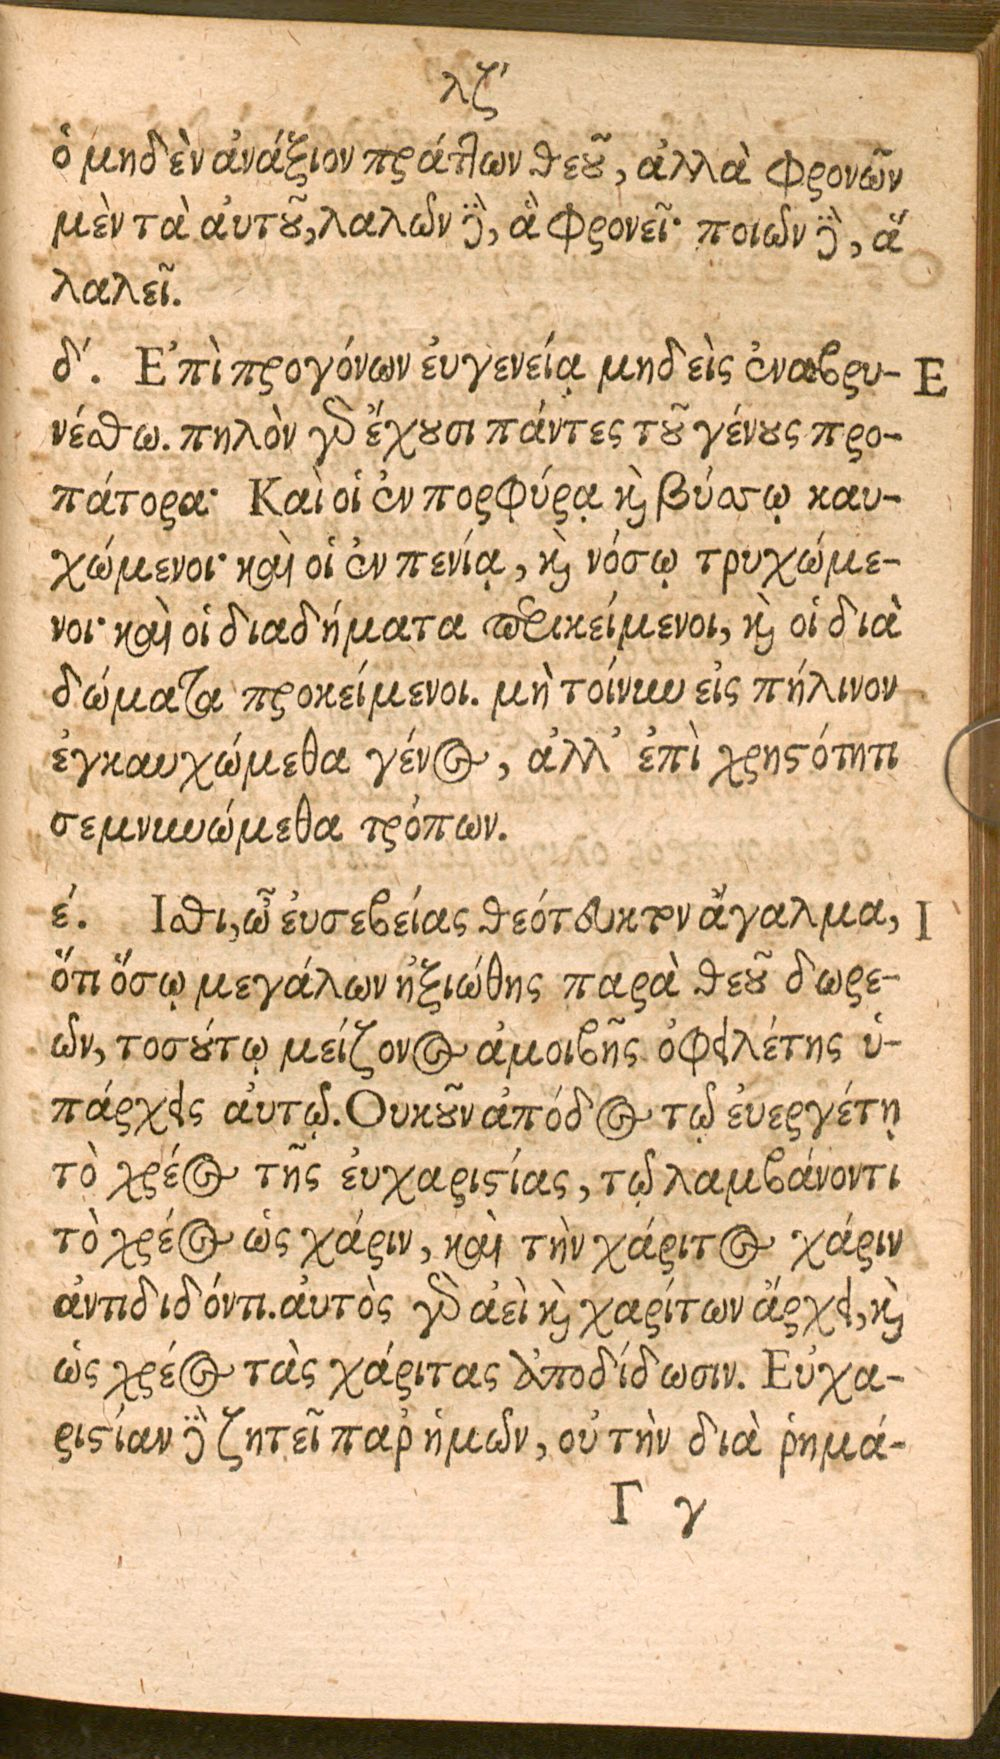 λζ΄
ὁ μηδὲν ἀνάξιον πράττων θεοῦ, ἀλλὰ φρονῶν
μὲν τὰ ἀυτοῦ, λαλῶν δὲ, ἃ φρονεῖ· ποιῶν δὲ, ἃ
λαλεῖ.
δ΄. Ἐπὶ προγόνων ἐυγενείᾳ μηδεὶς ἐναβρυ- Ε
νέσθω. πηλὸν γὰρ ἔχουσι πάντες τοῦ γένους προ-
πάτορα· Καὶ οἱ ἐν πορφύρᾳ καὶ βύσσῳ καυ-
χώμενοι· καὶ οἱ ἐν πενίᾳ, καὶ νόσῳ τρυχώμε-
νοι· καὶ οἱ διαδήματα περικείμενοι, καὶ οἱ διὰ
δώματα προκείμενοι. μὴ τοίνυν εἰς πήλινον
ἐγκαυχώμεθα γένος, ἀλλ᾿ ἐπὶ χρηστότητι
σεμνυνώμεθα τρόπων.
ε΄. Ισθι, ὦ ἐυσεβείας θεότευκτον ἄγαλμα, Ι
ὅτι ὅσῳ μεγάλων ἠξιώθης παρὰ θεοῦ δωρε-
ῶν, τοσούτῳ μείζονος ἀμοιβῆς ὀφειλέτης ὑ-
πάρχεις ἀυτῷ. Ουκοῦν ἀπόδος τῷ ἐυεργέτῃ
τὸ χρέος τῆς ἐυχαριστίας, τῷ λαμβάνοντι
τὸ χρέος ὡς χάριν, καὶ τὴν χάριτος χάριν
ἀντιδιδόντι. ἀυτὸς γὰρ ἀεὶ καὶ χαρίτων ἄρχει, καὶ
ὡς χρέος τὰς χάριτας ἀποδίδωσιν. Εὐχα-
ριστίαν δὲ ζητεῖ παρ᾿ ἡμῶν, οὐ τὴν διὰ ῥημά-
Γ γ